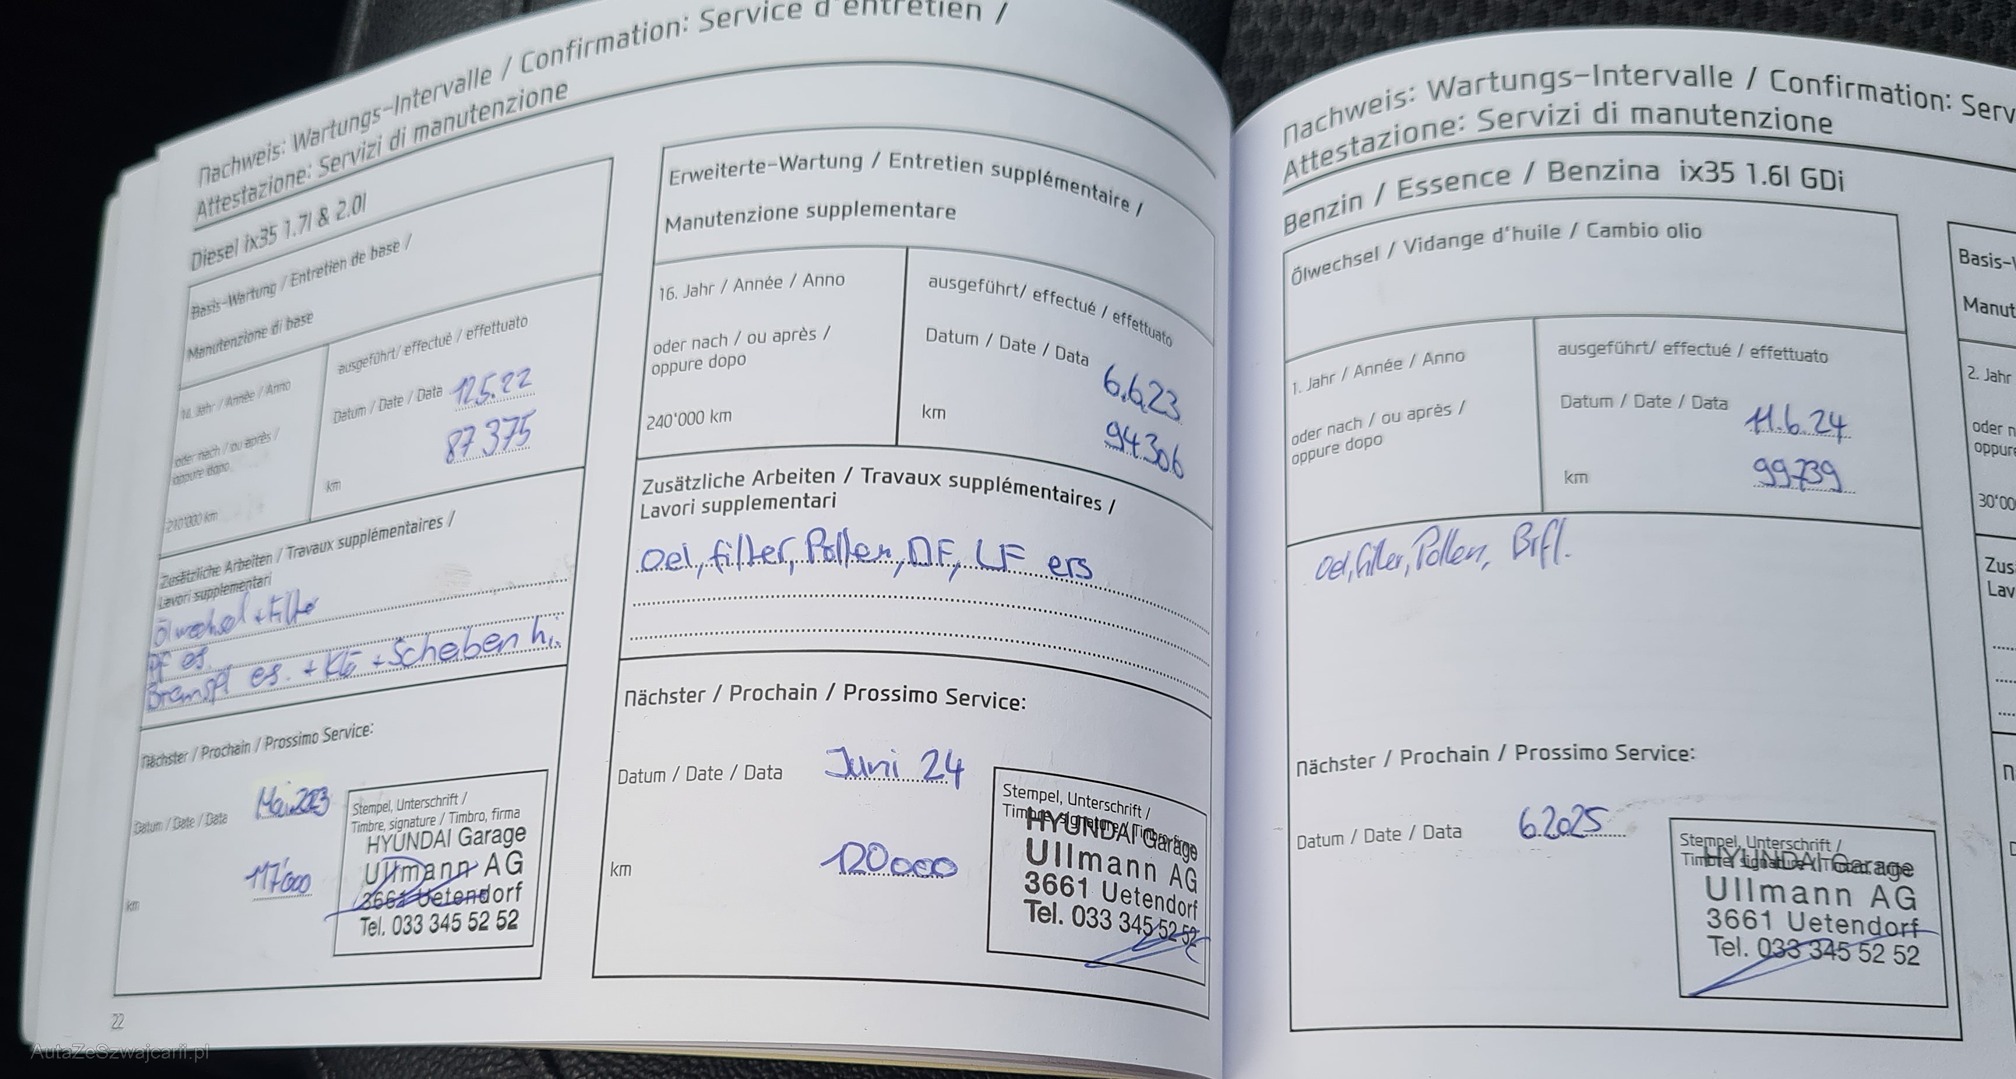 Nachweis: Wartungs-Intervalle / Confirmation: Service d'entretien /
Attestazione: Servizi di manutenzione
Diesel ix35 1.7l & 2.0l
Basis-Wartung / Entretien de base /
Manutenzione di base
14. Jahr / Année / Anno
oder nach / ou après /
oppure dopo
210'000 km
ausgeführt/ effectué / effettuato
Datum / Date / Data 12.5.22
87 375
km
Zusätzliche Arbeiten / Travaux supplémentaires /
Lavori supplementari
Ölwechsel + Filter
PF es.
Bremsfl es. + Klö + Scheiben hi.
Nächster / Prochain / Prossimo Service:
Datum / Date / Data
117'000
km
Stempel, Unterschrift /
Timbre, signature / Timbro, firma
HYUNDAI Garage
Ullmann AG
3661 Uetendorf
Tel. 033 345 52 52
22
Erweiterte-Wartung / Entretien supplémentaire /
Manutenzione supplementare
16. Jahr / Année / Anno
oder nach / ou après /
oppure dopo
240'000 km
ausgeführt/ effectué / effettuato
Datum / Date / Data 6.6.23
km 94306
Zusätzliche Arbeiten / Travaux supplémentaires /
Lavori supplementari
Oel, filter, Pollen, DF, LF ers
Nächster / Prochain / Prossimo Service:
Datum / Date / Data Juni 24
km 120000
Stempel, Unterschrift /
HYUNDAI Garage
Ullmann AG
3661 Uetendorf
Tel. 033 345 52 52
Nachweis: Wartungs-Intervalle / Confirmation: Serv
Attestazione: Servizi di manutenzione
Benzin / Essence / Benzina ix35 1.6l GDi
Ölwechsel / Vidange d'huile / Cambio olio
1. Jahr / Année / Anno
oder nach / ou après /
oppure dopo
ausgeführt/ effectué / effettuato
Datum / Date / Data 11.6.24
km 99739
Oel, filter, Pollen, Brfl.
Nächster / Prochain / Prossimo Service:
Datum / Date / Data 6.2025
Stempel, Unterschrift /
HYUNDAI Garage
Ullmann AG
3661 Uetendorf
Tel. 033 345 52 52
Basis-
Manut
2. Jahr
oder n
oppure
30'00
Zus
Lav
AutaZeSzwajcarii.pl